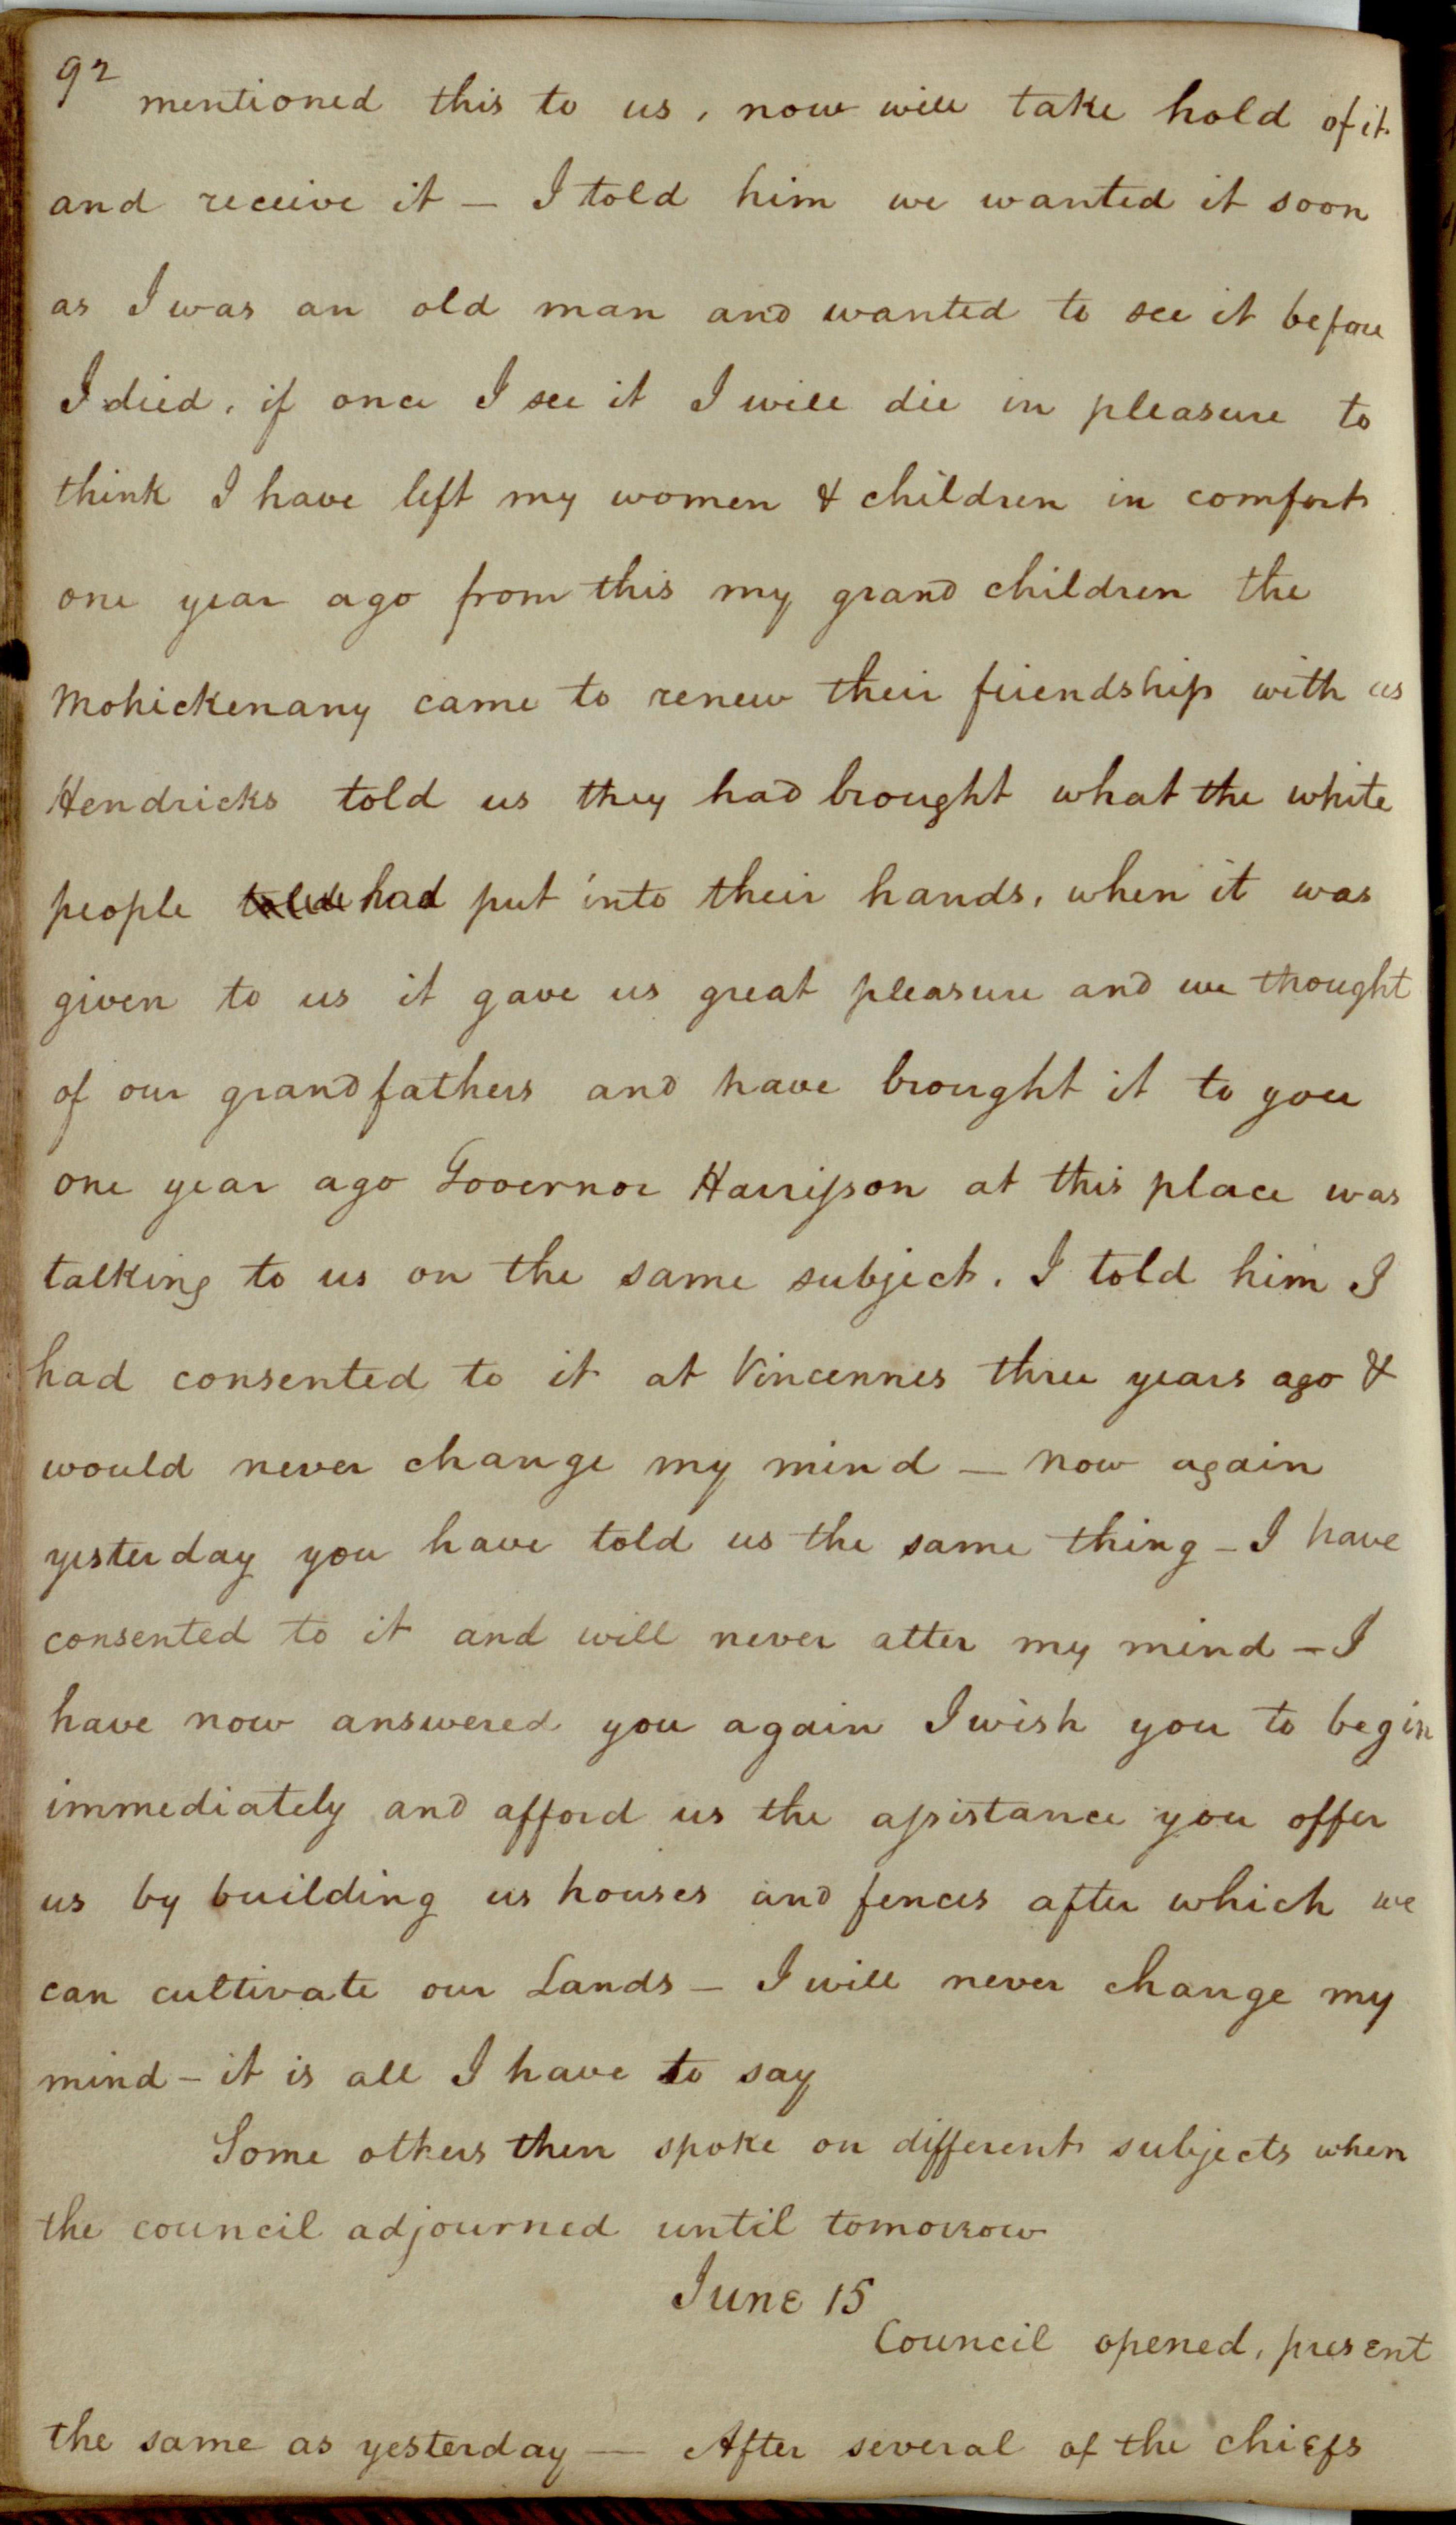 92
mentioned this to us, now will take hold of it
and receive it – I told him we wanted it soon
as I was an old man and wanted to see it before
I died, if once I see it I will die in pleasure to
think I have left my women & children in comfort
one year ago from this my grand children the
Mohickenany came to renew their friendship with us
Hendricks told us they had brought what the white
people had put into their hands, when it was
given to us it gave us great pleasure and we thought
of our grandfathers and have brought it to you
one year ago Governor Harrisson at this place was
talking to us on the same subject. I told him I
had consented to it at Vincennes three years ago &
would never change my mind – now again
yesterday you have told us the same thing – I have
consented to it and will never alter my mind – I
have now answered you again I wish you to begin
immediately and afford us the assistance you offer
us by building us houses and fences after which we
can cultivate our Lands – I will never change my
mind – it is all I have to say
Some others then spoke on different subjects when
the council adjourned until tomorrow
June 15
Council opened, present
the same as yesterday — After several of the chiefs